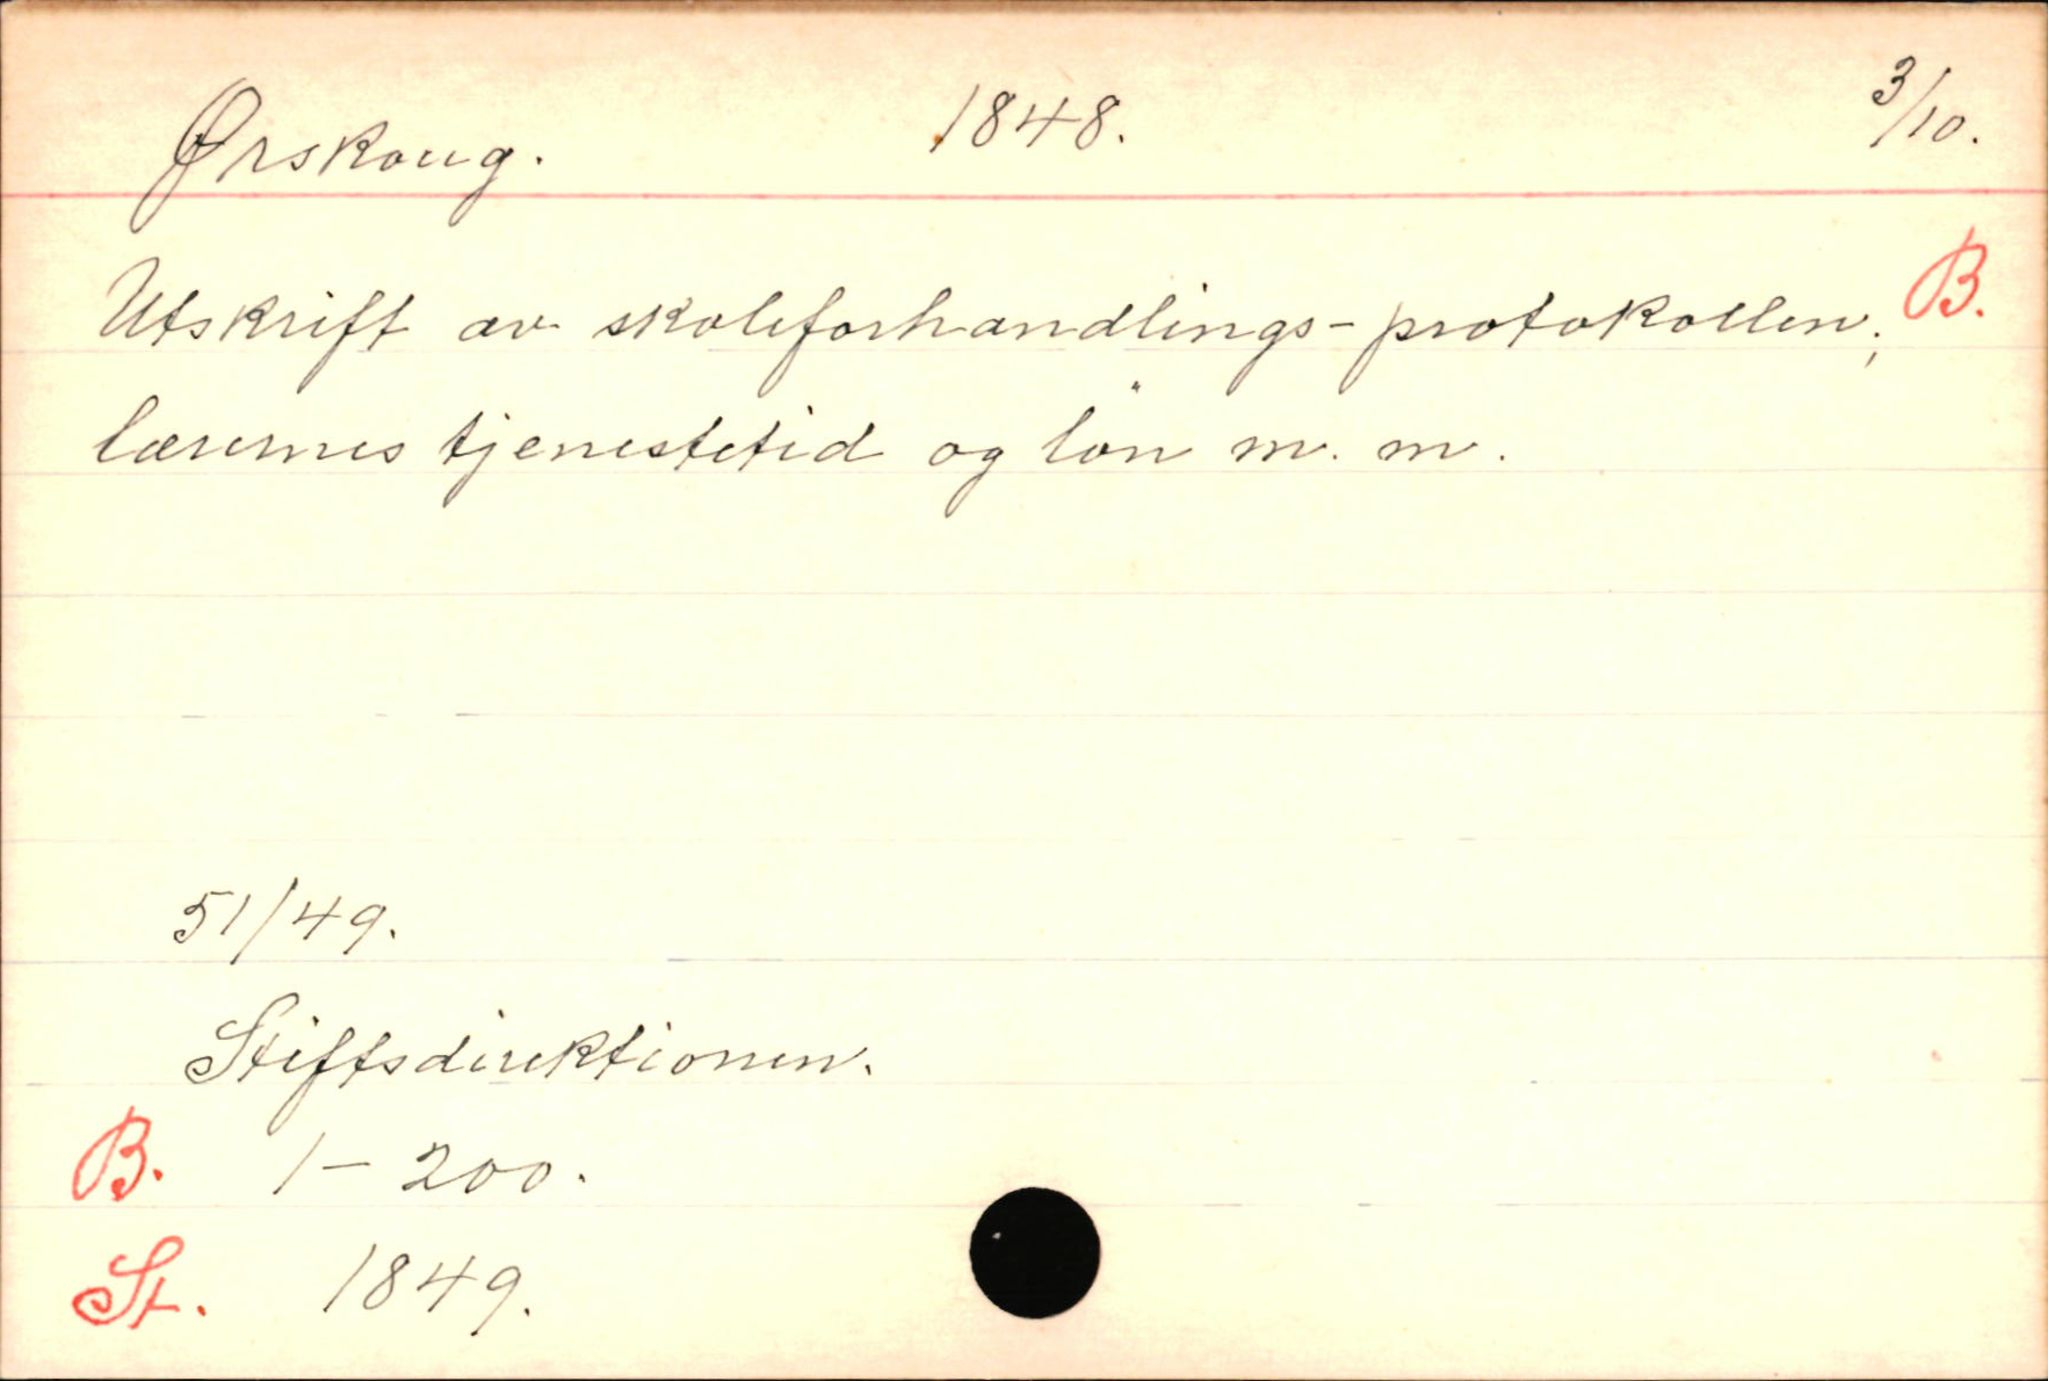 Ørskoug. 1848. 3/10.
Utskrift av skoleforhandlings-protokollen; B.
lærernes tjenestetid og lön m. m.
51/49.
Stiftsdirektionen.
B. 1-200.
St. 1849.